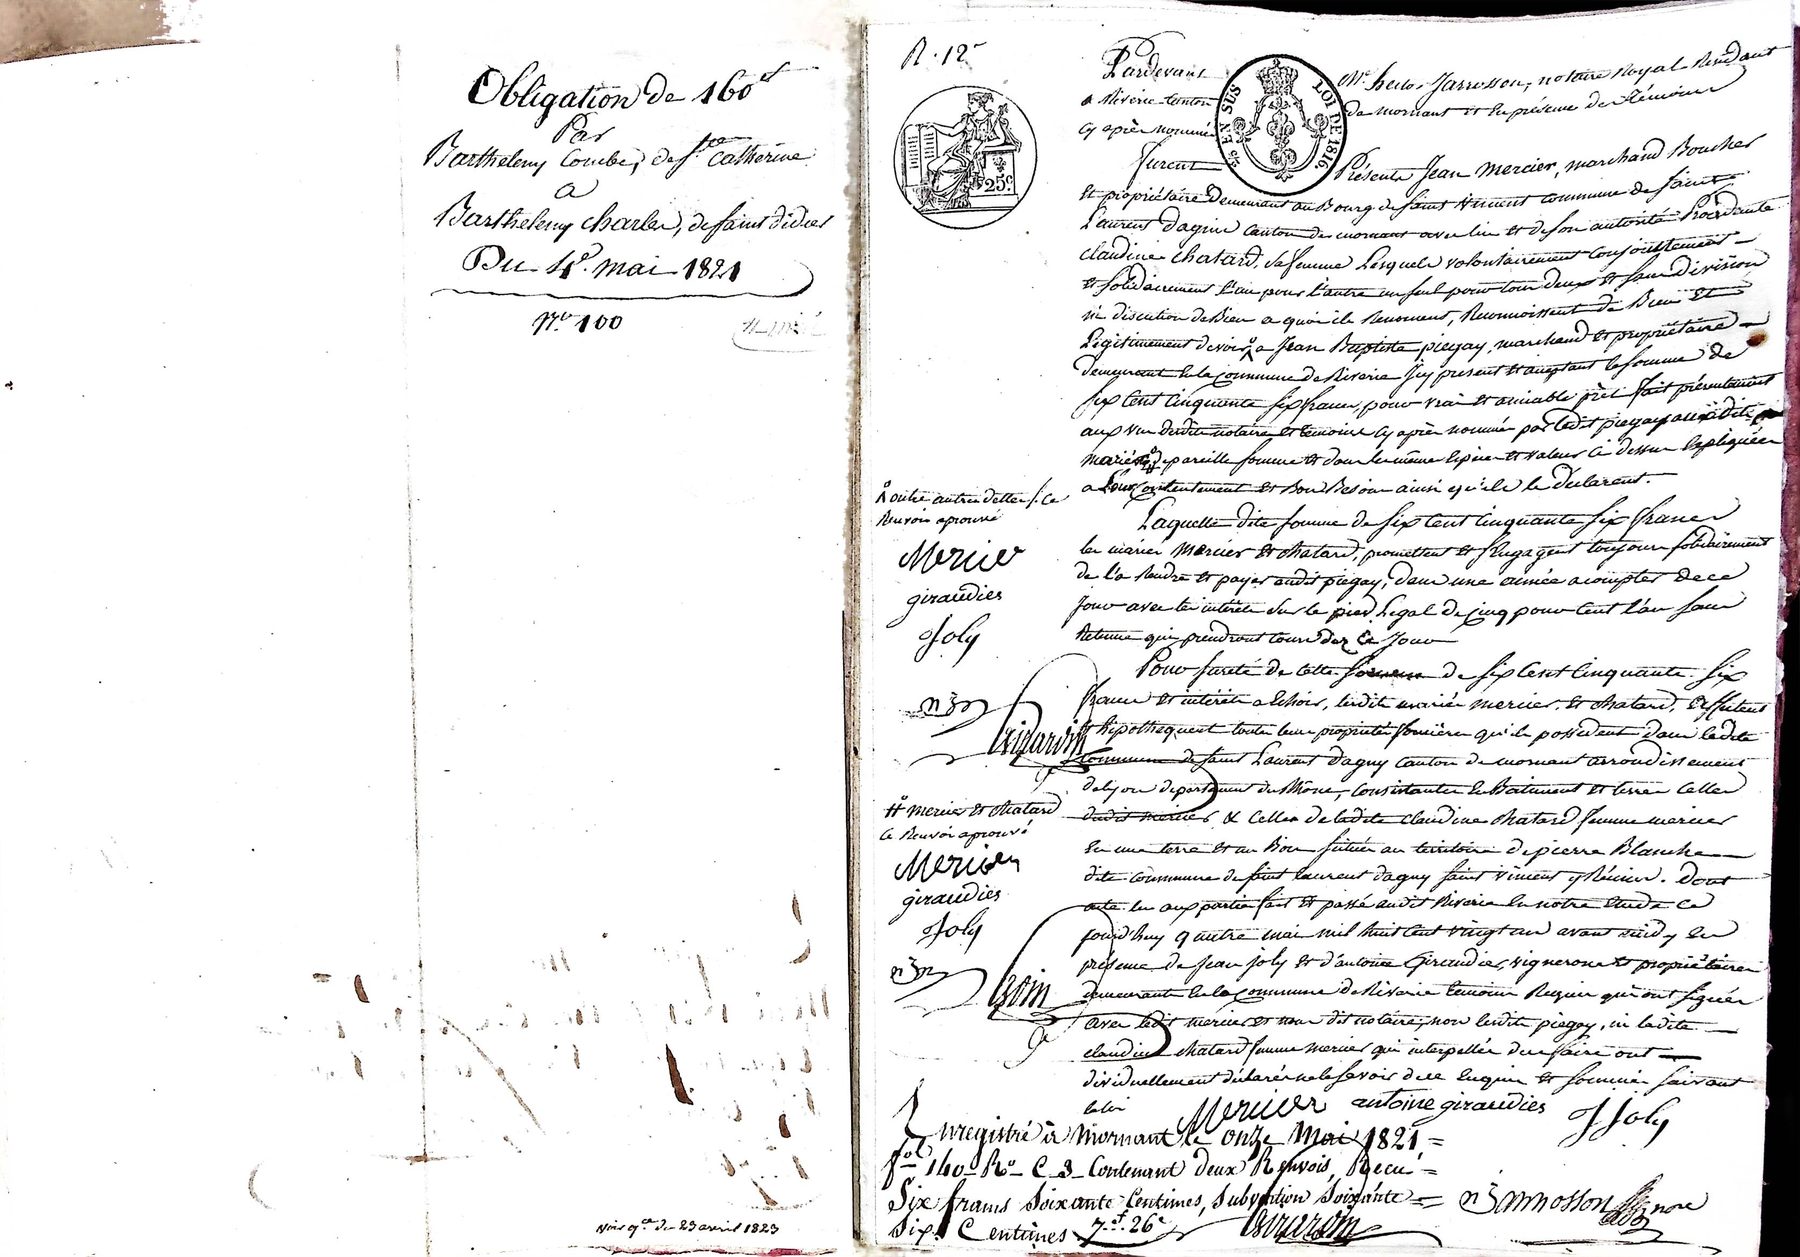 Obligation de 160 ff
Par
Barthelemy Combe, de Ste Catherine
a
Barthelemy Charles, de saint didier
Du 4e. mai 1821
No 100
voir qce du 23 avril 1823
R. 12e
EN SUS
LOI DE 1816.
25c.
Pardevant Me. hector, notaire royal Résidant
a Riverie canton de mornant et en présence des témoins
cy après nommés
furent Présents Jean Mercier, marchand Boucher
et propriétaire demeurant au Bourg de saint vincent commune de saint
Laurent dagny canton de mornant avec lui et de son autorité Procédante
claudine chatard, sa femme Lesquels volontairement conjointement
et solidairement l'un pour l'autre un seul pour tous deux et sans division
ni discution de Biens a quoi ils Renoncent, Reconnoissent de Bien et
Légitimement devoir a Jean Baptiste piegay, marchand et propriétaire
demeurant en la commune de Riverie Icy present et acceptant la somme de
six cent cinquante six francs, pour vrai et amiable prêt fait présentement
aux vu dudit notaire et témoins cy après nommés par ledit piegay auxdits
mariés de pareille somme et dans les même espèces et valeurs ci dessus expliquées
a leur contentement et Bon Besoin ainsi qu'ils le déclarent.
outre autres dettes /. Ce
Renvoi aprouvé
Mercier
giraudies
Joly
Laquelle dite somme de six cent cinquante six francs
les mariés Mercier et chatard, promettent et s'engagent toujours solidairement
de la Rendre et payer audit piegay, dans une année acompter de ce
Jour avec les intérêts sur le pied Legal de cinq pour cent l'an sans
Retenue qui prendront cours dez ce Jour
Pour sureté de cette somme de six cent cinquante six
francs et intérêts a échoir, lesdits mariés mercier et chatard, affectent
et hipothequent toutes leurs propriétés foncières qu'ils possèdent dans ladite
commune de saint Laurent dagny canton de mornant arrondissement
de lyon departement du Rhône, consistantes en Batiments et terres celles
dudit mercier, & celles de ladite claudine chatard femme mercier
en une terre et un Bois située au territoire de pierre Blanche
dite commune de saint laurent dagny saint vincent y Réunie. Dont
acte lu aux parties fait et passé audit Riverie en notre étude ce
Jourd'huy quatre mai mil huit cent vingt un avant midy en
présence de Jean Joly et d'antoine Giraudies, vignerons et propriétaires
demeurants en la commune de Riverie témoins Requis qui ont signés
avec ledit mercier et nous dit notaire, non lesdits piegay, ni ladite
claudine chatard femme mercier qui interpellés de ce faire ont
dividuellement déclarés ne le savoir de ce enquis et sommés suivant
la loi
Girardin
mercier et chatard
Ce Renvoi aprouvé
Mercier
giraudies
Joly
Mercier antoine giraudies J Joly
Enregistré à Mornant le onze Mai 1821 =
fol 140 Ro C 3 Contenant deux Renvois, Reçu =
Six francs soixante Centimes, Subvention soixante =
Six Centimes 7.ff 26c
Girardin